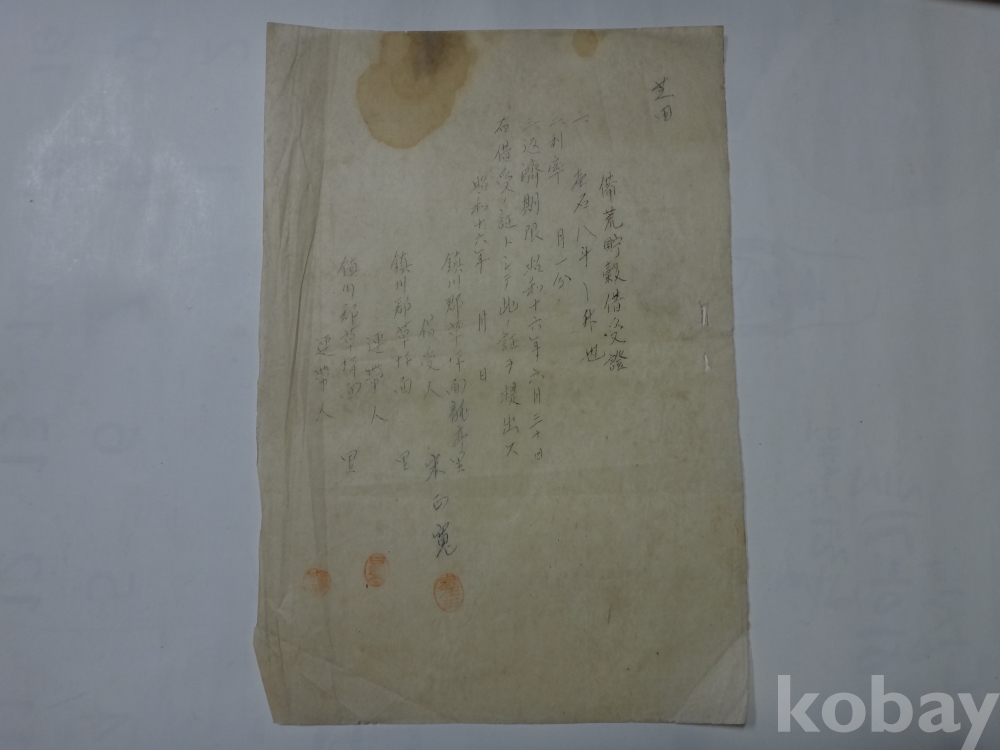 備荒貯穀借受證
一、 壱石八斗 升也
一、利率 月一分
一、返濟期限 昭和十六年六月三十日
右借受ノ証トシテ此ノ証ヲ提出ス
昭和十六年 月 日
鎮川郡草坪面龍亭里
借受人 宋 寬
鎮川郡草坪面 里
連帶人
鎮川郡草坪面 里
連帶人
kobay